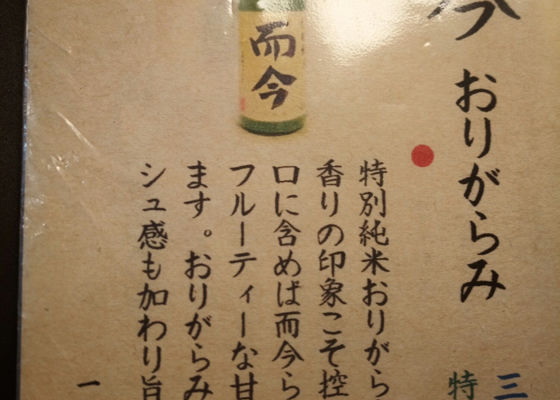 今 おりがらみ
三
特
而今
特別純米おりがら
香りの印象こそ控
口に含めば而今ら
フルーティーな甘
ます。おりがらみ
シュ感も加わり旨
一